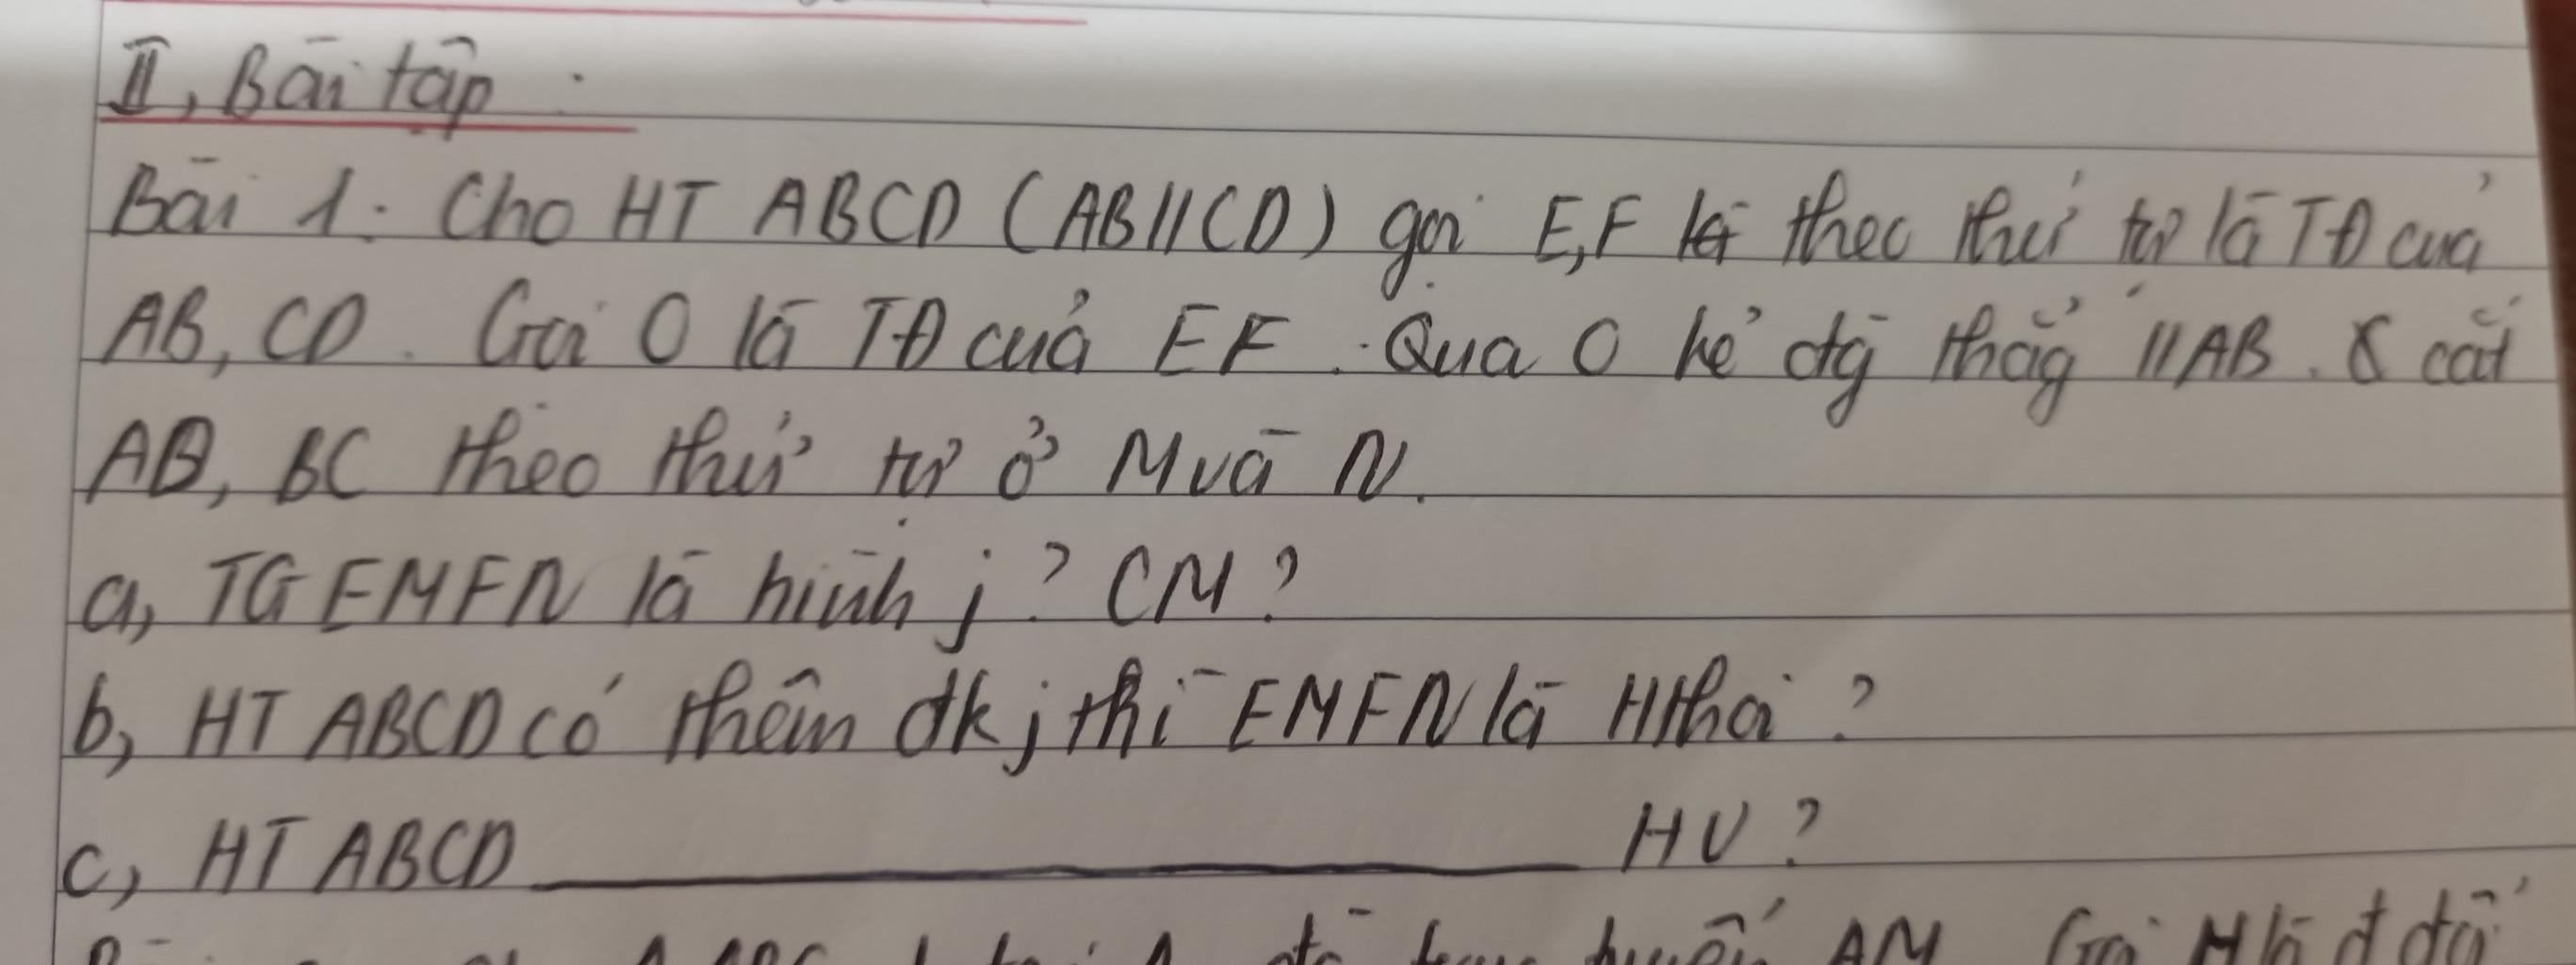 II, Bài tập :
Bài 1: Cho HT ABCD (AB//CD) gọi E,F theo thứ tự là TĐ của
AB, CD. Gọi O là TĐ của EF. Qua O kẻ đg thẳg //AB. & cắt
AD, BC theo thứ tự ở M và N.
a, TG EMFN là hình j? CM?
b, HT ABCD có thêm đk j thì EMFN là Hthoi?
c, HT ABCD ____________ HV?
AM Gọi H là đ đx